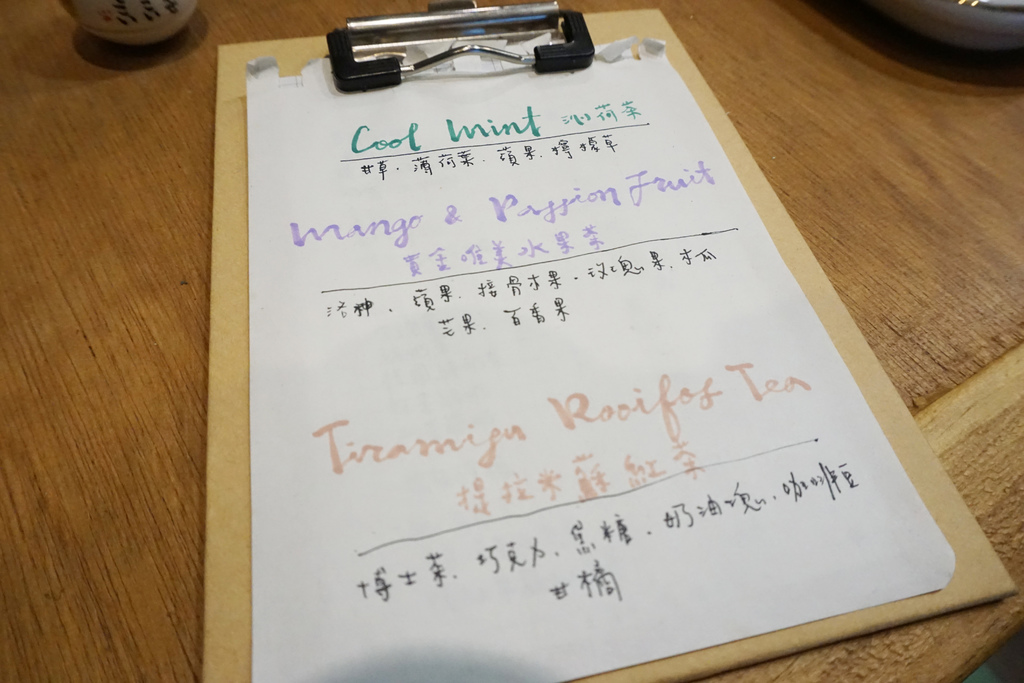 Cool Mint 沁荷茶
甘草、薄荷葉、蘋果、檸檬草
Mango & Passion Fruit
黃金唯美水果茶
洛神、蘋果、接骨木果、玫瑰果、木瓜
芒果、百香果
Tiramisu Rooifos Tea
提拉米蘇紅茶
博士茶、巧克力、焦糖、奶油塊、咖啡豆
甘橘